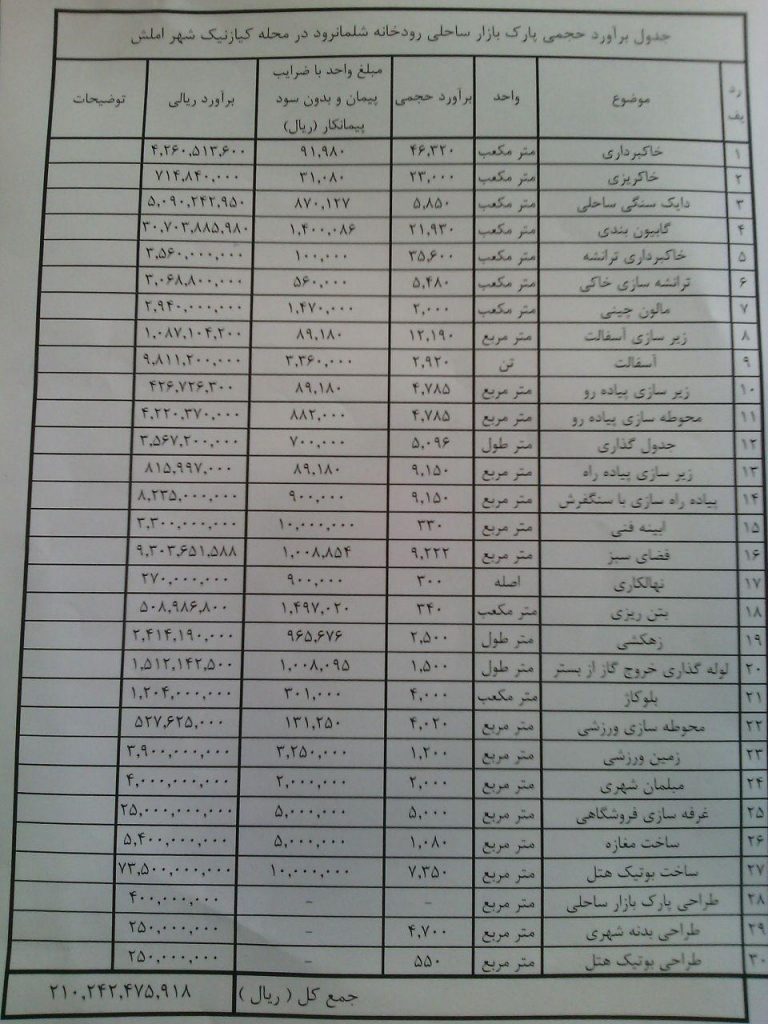 جدول برآورد حجمی پارک بازار ساحلی رودخانه شلمانرود در محله کیازنیک شهر املش
ردیف موضوع واحد برآورد حجمی مبلغ واحد با ضرایب پیمان و بدون سود پیمانکار (ریال) برآورد ریالی توضیحات
۱ خاکبرداری متر مکعب ۴۶,۳۲۰ ۹۱,۹۸۰ ۴,۲۶۰,۵۱۳,۶۰۰
۲ خاکریزی متر مکعب ۲۳,۰۰۰ ۳۱,۰۸۰ ۷۱۴,۸۴۰,۰۰۰
۳ دایک سنگی ساحلی متر مکعب ۵,۸۵۰ ۸۷۰,۱۲۷ ۵,۰۹۰,۲۴۲,۹۵۰
۴ گابیون بندی متر مکعب ۲۱,۹۳۰ ۱,۴۰۰,۰۸۶ ۳۰,۷۰۳,۸۸۵,۹۸۰
۵ خاکبرداری ترانشه متر مکعب ۳۵,۶۰۰ ۱۰۰,۰۰۰ ۳,۵۶۰,۰۰۰,۰۰۰
۶ ترانشه سازی خاکی متر مکعب ۵,۴۸۰ ۵۶۰,۰۰۰ ۳,۰۶۸,۸۰۰,۰۰۰
۷ مالون چینی متر مکعب ۲,۰۰۰ ۱,۴۷۰,۰۰۰ ۲,۹۴۰,۰۰۰,۰۰۰
۸ زیر سازی آسفالت متر مربع ۱۲,۱۹۰ ۸۹,۱۸۰ ۱,۰۸۷,۱۰۴,۲۰۰
۹ آسفالت تن ۲,۹۲۰ ۳,۳۶۰,۰۰۰ ۹,۸۱۱,۲۰۰,۰۰۰
۱۰ زیر سازی پیاده رو متر مربع ۴,۷۸۵ ۸۹,۱۸۰ ۴۲۶,۷۲۶,۳۰۰
۱۱ محوطه سازی پیاده رو متر مربع ۴,۷۸۵ ۸۸۲,۰۰۰ ۴,۲۲۰,۳۷۰,۰۰۰
۱۲ جدول گذاری متر طول ۵,۰۹۶ ۷۰۰,۰۰۰ ۳,۵۶۷,۲۰۰,۰۰۰
۱۳ زیر سازی پیاده راه متر مربع ۹,۱۵۰ ۸۹,۱۸۰ ۸۱۵,۹۹۷,۰۰۰
۱۴ پیاده راه سازی با سنگفرش متر مربع ۹,۱۵۰ ۹۰۰,۰۰۰ ۸,۲۳۵,۰۰۰,۰۰۰
۱۵ ابینه فنی متر مربع ۳۳۰ ۱۰,۰۰۰,۰۰۰ ۳,۳۰۰,۰۰۰,۰۰۰
۱۶ فضای سبز متر مربع ۹,۲۲۲ ۱,۰۰۸,۸۵۴ ۹,۳۰۳,۶۵۱,۵۸۸
۱۷ نهالکاری اصله ۳۰۰ ۹۰۰,۰۰۰ ۲۷۰,۰۰۰,۰۰۰
۱۸ بتن ریزی متر مکعب ۳۴۰ ۱,۴۹۷,۰۲۰ ۵۰۸,۹۸۶,۸۰۰
۱۹ زهکشی متر طول ۲,۵۰۰ ۹۶۵,۶۷۶ ۲,۴۱۴,۱۹۰,۰۰۰
۲۰ لوله گذاری خروج گاز از بستر متر طول ۱,۵۰۰ ۱,۰۰۸,۰۹۵ ۱,۵۱۲,۱۴۲,۵۰۰
۲۱ بلوکاژ متر مکعب ۴,۰۰۰ ۳۰۱,۰۰۰ ۱,۲۰۴,۰۰۰,۰۰۰
۲۲ محوطه سازی ورزشی متر مربع ۴,۰۲۰ ۱۳۱,۲۵۰ ۵۲۷,۶۲۵,۰۰۰
۲۳ زمین ورزشی متر مربع ۱,۲۰۰ ۳,۲۵۰,۰۰۰ ۳,۹۰۰,۰۰۰,۰۰۰
۲۴ مبلمان شهری متر مربع ۲,۰۰۰ ۲,۰۰۰,۰۰۰ ۴,۰۰۰,۰۰۰,۰۰۰
۲۵ غرفه سازی فروشگاهی متر مربع ۵,۰۰۰ ۵,۰۰۰,۰۰۰ ۲۵,۰۰۰,۰۰۰,۰۰۰
۲۶ ساخت مغازه متر مربع ۱,۰۸۰ ۵,۰۰۰,۰۰۰ ۵,۴۰۰,۰۰۰,۰۰۰
۲۷ ساخت بوتیک هتل متر مربع ۷,۳۵۰ ۱۰,۰۰۰,۰۰۰ ۷۳,۵۰۰,۰۰۰,۰۰۰
۲۸ طراحی پارک بازار ساحلی متر مربع - - ۴۰۰,۰۰۰,۰۰۰
۲۹ طراحی بدنه شهری متر مربع ۴,۷۰۰ - ۲۵۰,۰۰۰,۰۰۰
۳۰ طراحی بوتیک هتل متر مربع ۵۵۰ - ۲۵۰,۰۰۰,۰۰۰
جمع کل ( ریال ) ۲۱۰,۲۴۲,۴۷۵,۹۱۸